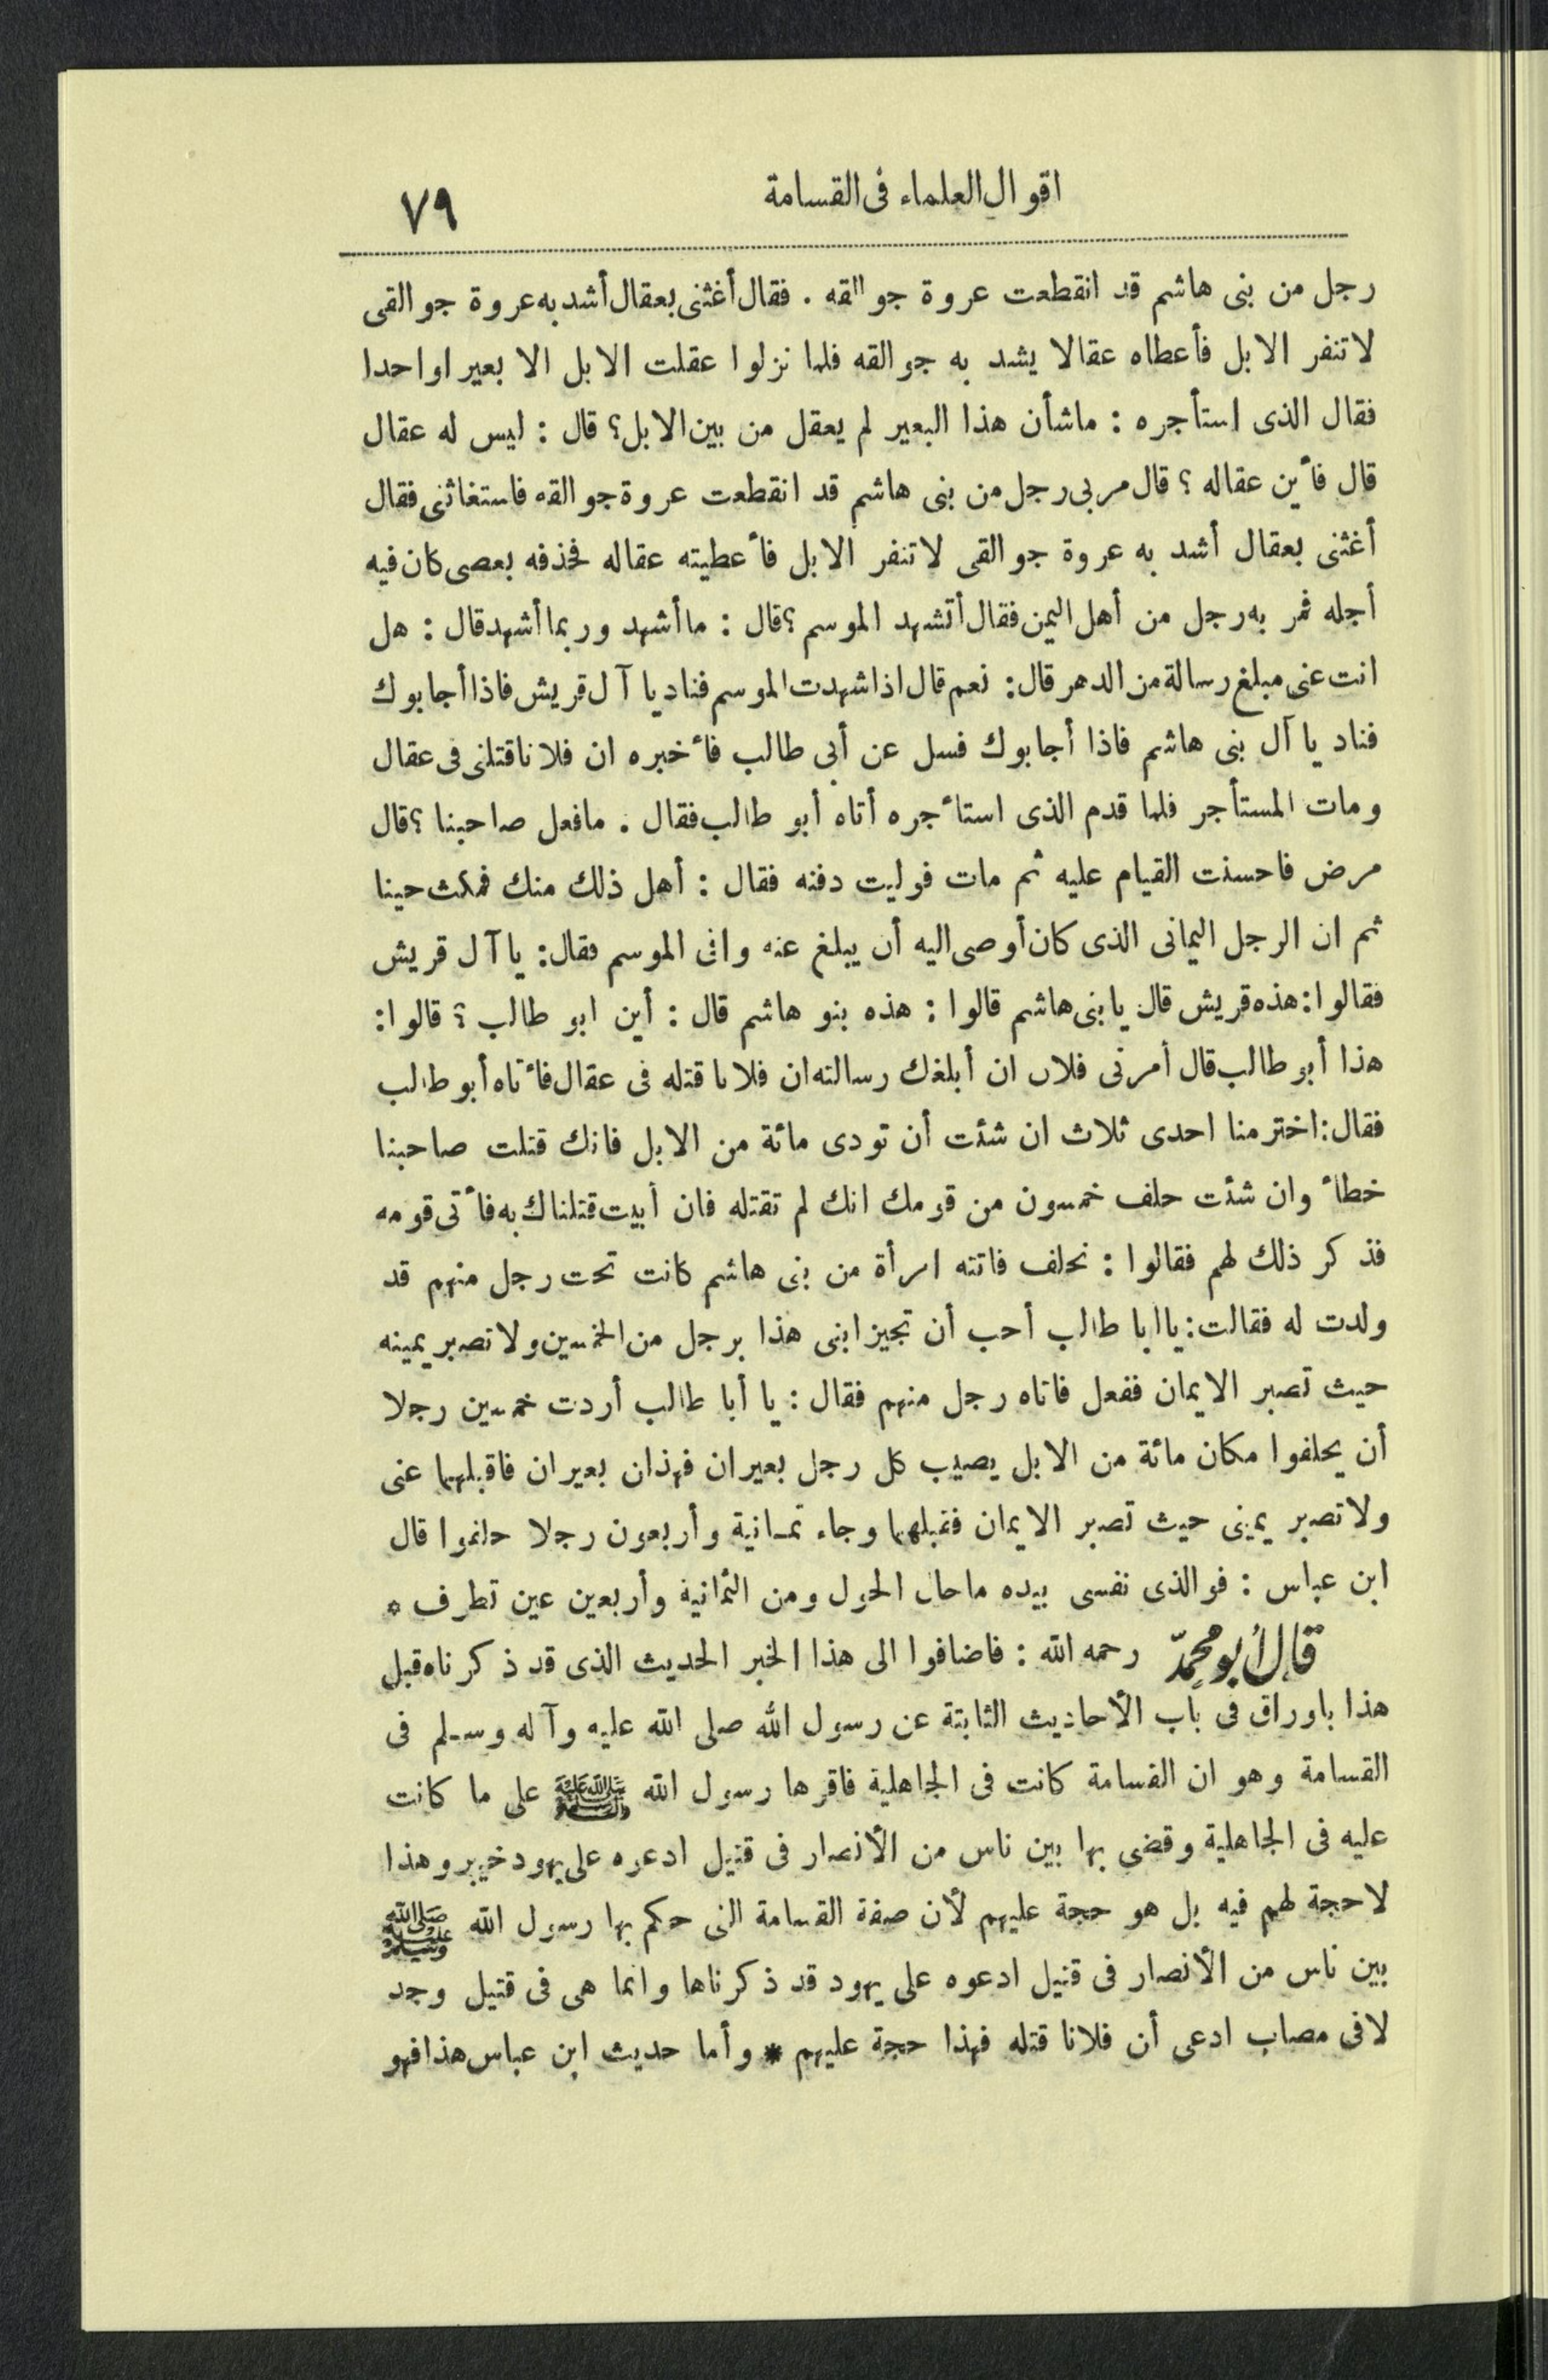 اقوال العلماء فى القسامة
٧٩
رجل من بنى هاشم قد انقطعت عروة جوالقه . فقال أغثنى بعقال أشد به عروة جوالقى
لا تنفر الابل فأعطاه عقالا يشد به جوالقه فلما نزلوا عقلت الابل الا بعيرا واحدا
فقال الذى استأجره : ماشأن هذا البعير لم يعقل من بين الابل؟ قال : ليس له عقال
قال فأين عقاله ؟ قال مر بى رجل من بنى هاشم قد انقطعت عروة جوالقه فاستغاثنى فقال
أغثنى بعقال أشد به عروة جوالقى لا تنفر الابل فأعطيته عقاله فحذفه بعصى كان فيه
أجله فمر به رجل من أهل اليمن فقال أتشهد الموسم ؟ قال : ما أشهد وربما أشهد قال : هل
انت عنى مبلغ رسالة من الدهر قال: نعم قال اذا شهدت الموسم فناد يا آل قريش فاذا أجابوك
فناد يا آل بنى هاشم فاذا أجابوك فسل عن أبى طالب فأخبره ان فلانا قتلنى فى عقال
ومات المستأجر فلما قدم الذى استأجره أتاه أبو طالب فقال . مافعل صاحبنا ؟ قال
مرض فاحسنت القيام عليه ثم مات فوليت دفنه فقال : أهل ذلك منك فمكث حينا
ثم ان الرجل اليمانى الذى كان أوصى اليه أن يبلغ عنه وافى الموسم فقال: يا آل قريش
فقالوا: هذه قريش قال يا بنى هاشم قالوا : هذه بنو هاشم قال : أين ابو طالب ؟ قالوا:
هذا أبو طالب قال أمرنى فلان ان أبلغك رسالته ان فلانا قتله فى عقال فأتاه أبو طالب
فقال: اختر منا احدى ثلاث ان شئت أن تودى مائة من الابل فانك قتلت صاحبنا
خطأ وان شئت حلف خمسون من قومك انك لم تقتله فان أبيت قتلناك به فأتى قومه
فذكر ذلك لهم فقالوا : نحلف فاتته امرأة من بنى هاشم كانت تحت رجل منهم قد
ولدت له فقالت: يا ابا طالب أحب أن تجيز ابنى هذا برجل من الخمسين ولا تصبر يمينه
حيث تصبر الايمان ففعل فاتاه رجل منهم فقال : يا أبا طالب أردت خمسين رجلا
أن يحلفوا مكان مائة من الابل يصيب كل رجل بعيران فهذان بعيران فاقبلهما عنى
ولا تصبر يمينى حيث تصبر الايمان فقبلهما وجاء ثمانية وأربعون رجلا حلفوا قال
ابن عباس : فوالذى نفسى بيده ماحال الحول ومن الثمانية وأربعين عين تطرف *
قال أبو محمد رحمه الله : فاضافوا الى هذا الخبر الحديث الذى قد ذكرناه قبل
هذا باوراق فى باب الأحاديث الثابتة عن رسول الله صلى الله عليه وآله وسلم فى
القسامة وهو ان القسامة كانت فى الجاهلية فاقرها رسول الله ﷺ على ما كانت
عليه فى الجاهلية وقضى بها بين ناس من الأنصار فى قتيل ادعوه على يهود خيبر وهذا
لا حجة لهم فيه بل هو حجة عليهم لأن صفة القسامة التى حكم بها رسول الله ﷺ
بين ناس من الأنصار فى قتيل ادعوه على يهود قد ذكرناها وانما هى فى قتيل وجد
لا فى مصاب ادعى أن فلانا قتله فهذا حجة عليهم * وأما حديث ابن عباس هذا فهو